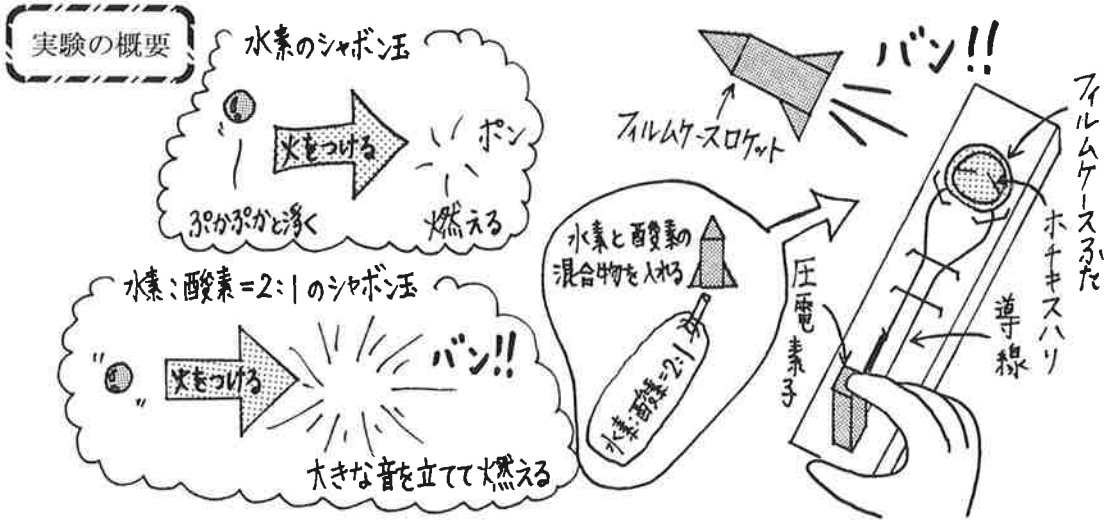 実験の概要
水素のシャボン玉
火をつける
ポン
ぷかぷかと浮く
燃える
水素:酸素=2:1のシャボン玉
火をつける
バン!!
大きな音を立てて燃える
水素と酸素の
混合物を入れる
水素:酸素=2:1
バン!!
フィルムケースロケット
フィルムケースふた
ホチキスハリ
導線
圧電素子